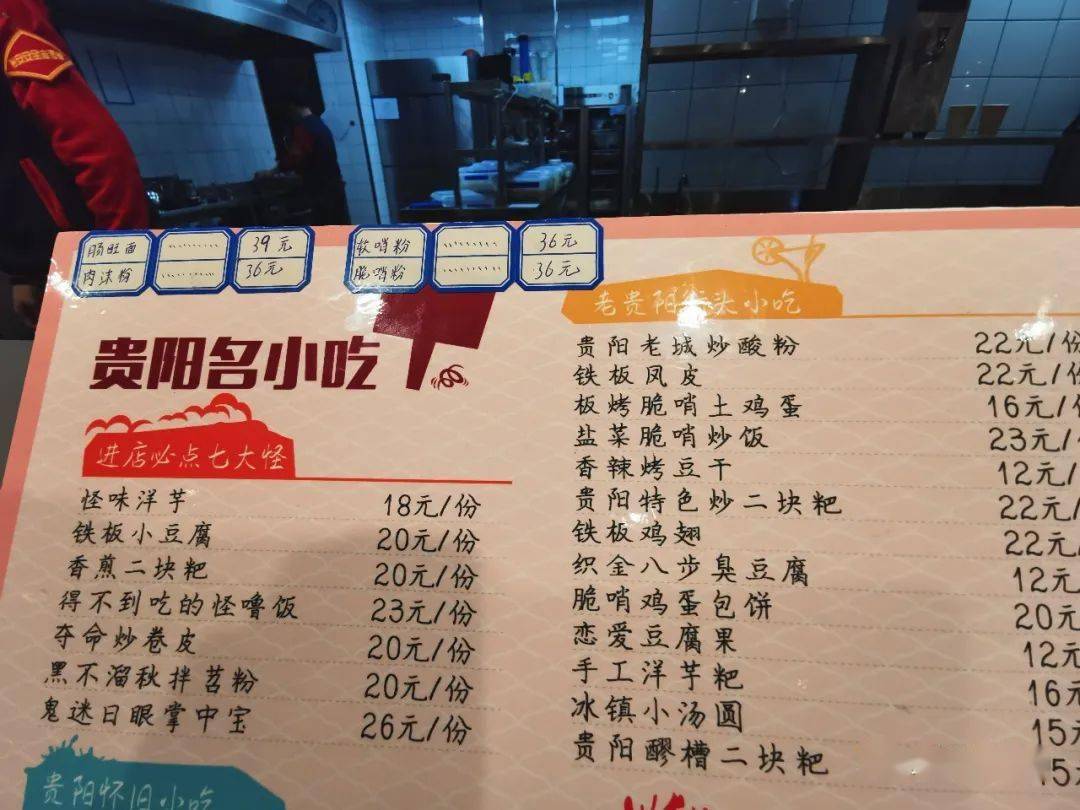 肠旺面 ········· 39元
肉沫粉 ········· 36元
软哨粉 ········· 36元
脆哨粉 ········· 36元
贵阳名小吃
进店必点七大怪
怪味洋芋 18元/份
铁板小豆腐 20元/份
香煎二块粑 20元/份
得不到吃的怪噜饭 23元/份
夺命炒卷皮 20元/份
黑不溜秋拌苕粉 20元/份
鬼迷日眼掌中宝 26元/份
贵阳怀旧小吃
老贵阳街头小吃
贵阳老城炒酸粉 22元/份
铁板凤皮 22元/份
板烤脆哨土鸡蛋 16元/份
盐菜脆哨炒饭 23元/
香辣烤豆干 12元/
贵阳特色炒二块粑 22元/
铁板鸡翅 22元/
织金八步臭豆腐 12元/
脆哨鸡蛋包饼 20元/
恋爱豆腐果 12元/
手工洋芋粑 16元
冰镇小汤圆 15元
贵阳醪糟二块粑